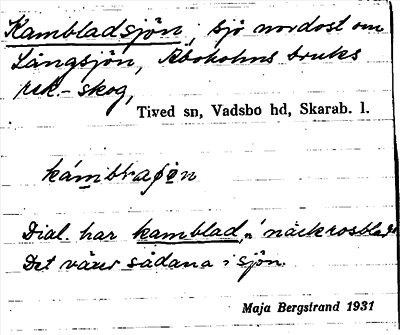 Kambladsjön, sjö nordost om
Långsjön, Aboholms bruks
rek.-skog,
Tived sn, Vadsbo hd, Skarab. l.
Dial. har kamblad, n 'näckrosblad'.
Det växer sådana i sjön.
Maja Bergstrand 1931